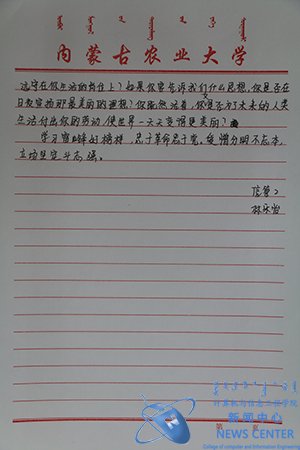 内蒙古农业大学
远守在你生活的岗位上？如果你要告诉我们什么思想，你是否在
日夜宣扬那最美丽的理想？你既然活着，你又是否为了未来的人类
生活付出你的劳动，使世界一天天变得更美丽？
学习雷锋的榜样，忠于革命忠于党。爱憎分明不忘本，
立场坚定斗志强。
信管2
计算机与信息工程学院
新闻中心
NEWS CENTER
College of computer and information Engineering
第 页